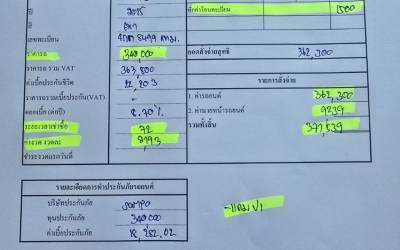 ปี 2015
สี เทา
เลขทะเบียน
ราคารถ 340,000
ราคารถ รวม VAT 363,800
ค่าเบี้ยประกันชีวิต
ราคารถรวมเบี้ยประกัน(VAT)
ดอกเบี้ย (ต่อปี) 8.30%
ระยะเวลาเช่าซื้อ 72
ค่างวด งวดละ 8193
ชำระงวดแรกวันที่
1500
ยอดสั่งจ่ายสุทธิ 362,300
รายการสั่งจ่าย
1. ค่ารถยนต์ 362,300
2. ค่านายหน้ารถยนต์ 9239
รวมทั้งสิ้น 371,539
รายละเอียดการทำประกันภัยรถยนต์
บริษัทประกันภัย
ทุนประกันภัย 340,000
ค่าเบี้ยประกันภัย 18,252.02
-แถม ป1